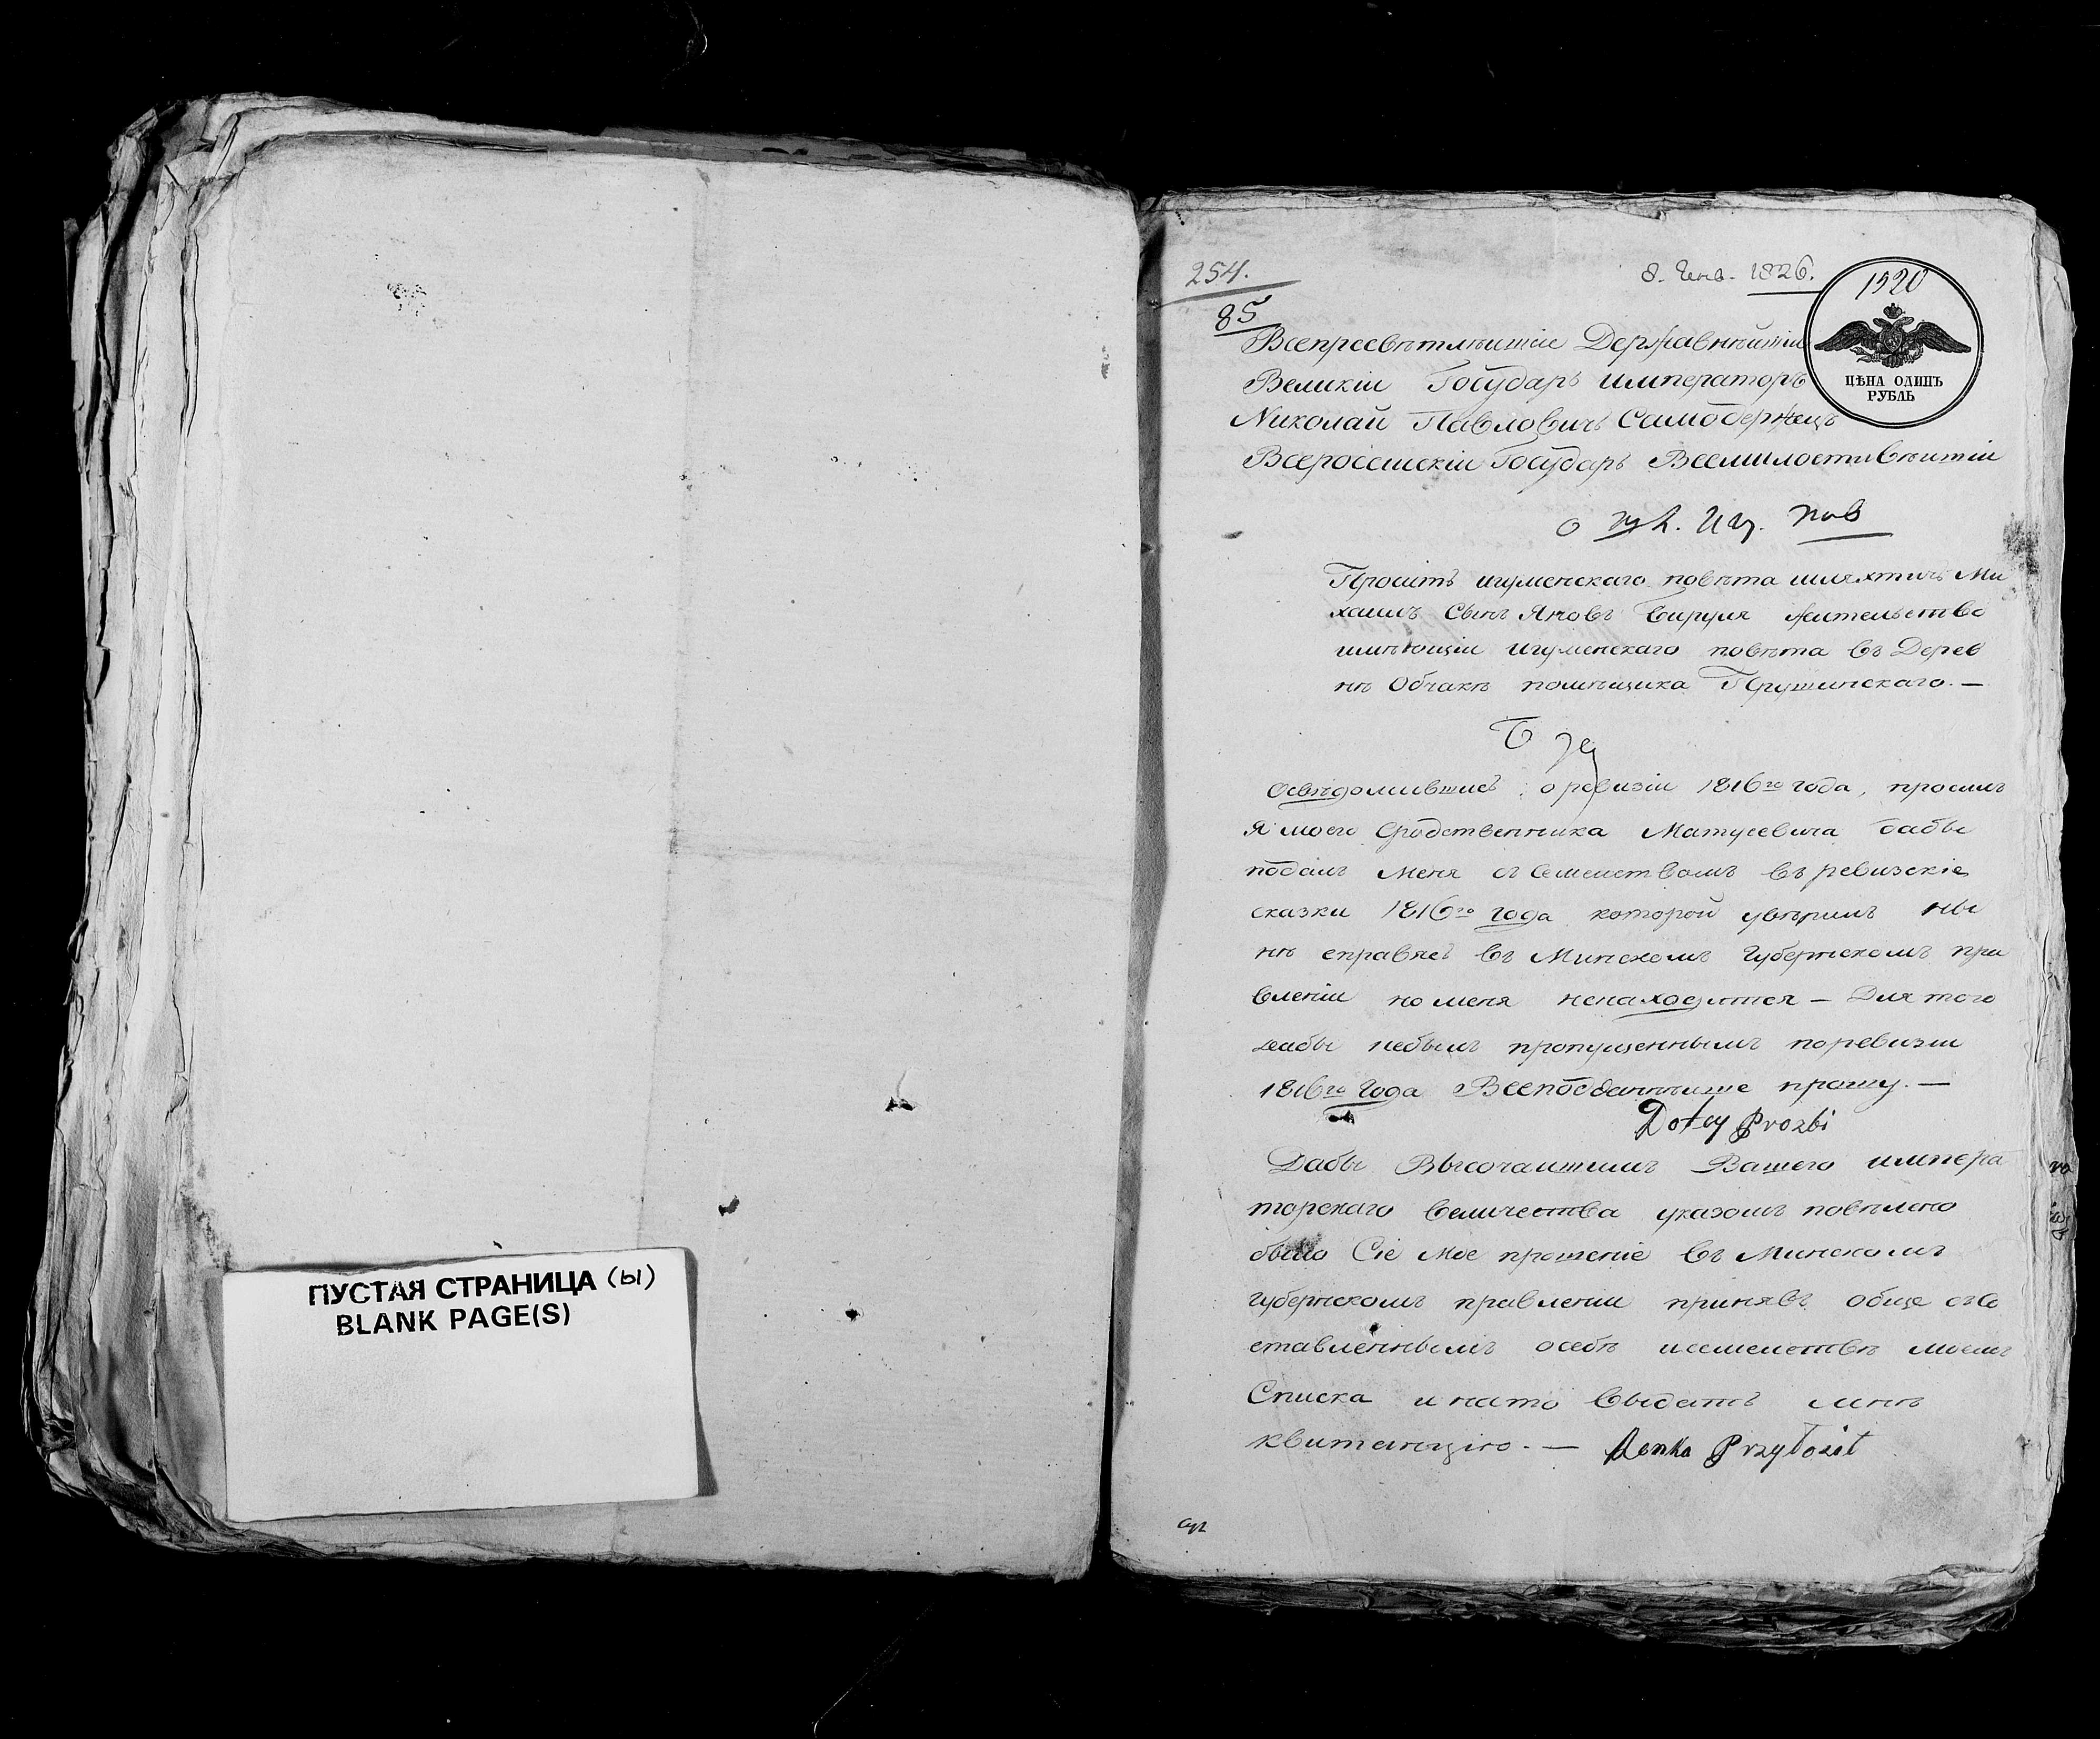 ПУСТАЯ СТРАНИЦА (ы)
BLANK PAGE(S)
254.
85
8. Генв. 1826.
1520
ЦѢНА ОДИНЪ
РУБЛЬ
Всепресвѣтлѣишіи Державнѣйшіи
Великіи Государь императоръ
Николай Павловичъ Самодержецъ
Всеросеискіи Государь Всемилостивѣишіи
о Иг. пов
Проситъ игуменскаго повѣта шляхтичъ Ми
хаилъ Сынъ Яновъ Бируля жительство
имѣющіи игуменскаго повѣта въ Дерев
нѣ Обчакѣ помѣщика Прушинскаго. —
Освѣдомившись о ревизіи 1816го года, просилъ
я моего Сродственника Матусевича дабы
подалъ меня съ Семеиствомъ въ ревизскіе
сказки 1816го года которой увѣрилъ ны
нѣ справясь въ Минскомъ Губернскомъ пра
вленіи но меня ненаходится — Для того
дабы небылъ пропущеннымъ поревизіи
1816го Года Всеподаннѣише прошу. —
Do tey Prozbi
Дабы Высочаишимъ Вашего импера
торскаго Величества указомъ повѣлѣно
было Сіе мое прошеніе въ Минскомъ
губернскомъ правленіи принявъ обще съ со
ставленнымъ особѣ исемеиствѣ моемъ
Списка и на то выдать мнѣ
квитанцію. — Renka Przyłożil